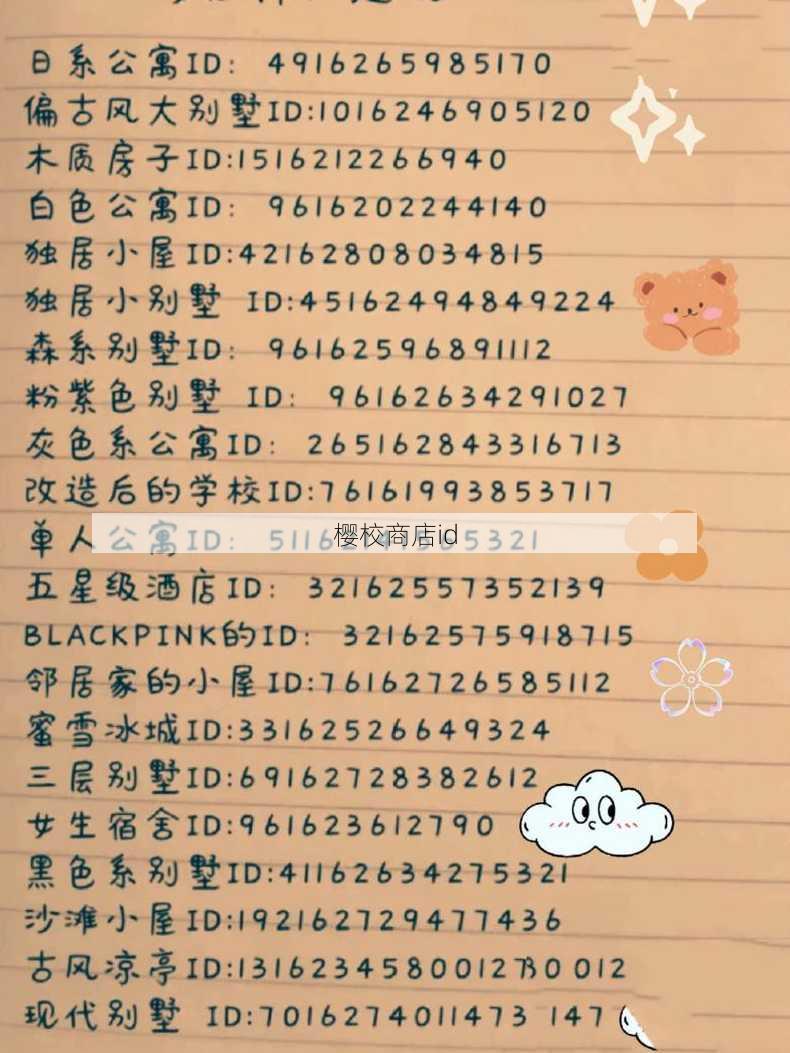 日系公寓ID: 4916265985170
偏古风大别墅ID:1016246905120
木质房子ID:1516212266940
白色公寓ID: 9616202244140
独居小屋ID:42162808034815
独居小别墅 ID:45162494849224
森系别墅ID: 96162596891112
粉紫色别墅 ID: 96162634291027
灰色系公寓ID: 265162843316713
改造后的学校ID:76161993853717
单人公寓ID:
樱校商店id
五星级酒店ID: 32162557352139
BLACKPINK的ID: 32162575918715
邻居家的小屋ID:76162726585112
蜜雪冰城ID:33162526649324
三层别墅ID:69162728382612
女生宿舍ID:961623612790
黑色系别墅ID:41162634275321
沙滩小屋ID:192162729477436
古风凉亭ID:131623458001
现代别墅 ID:7016274011473 147